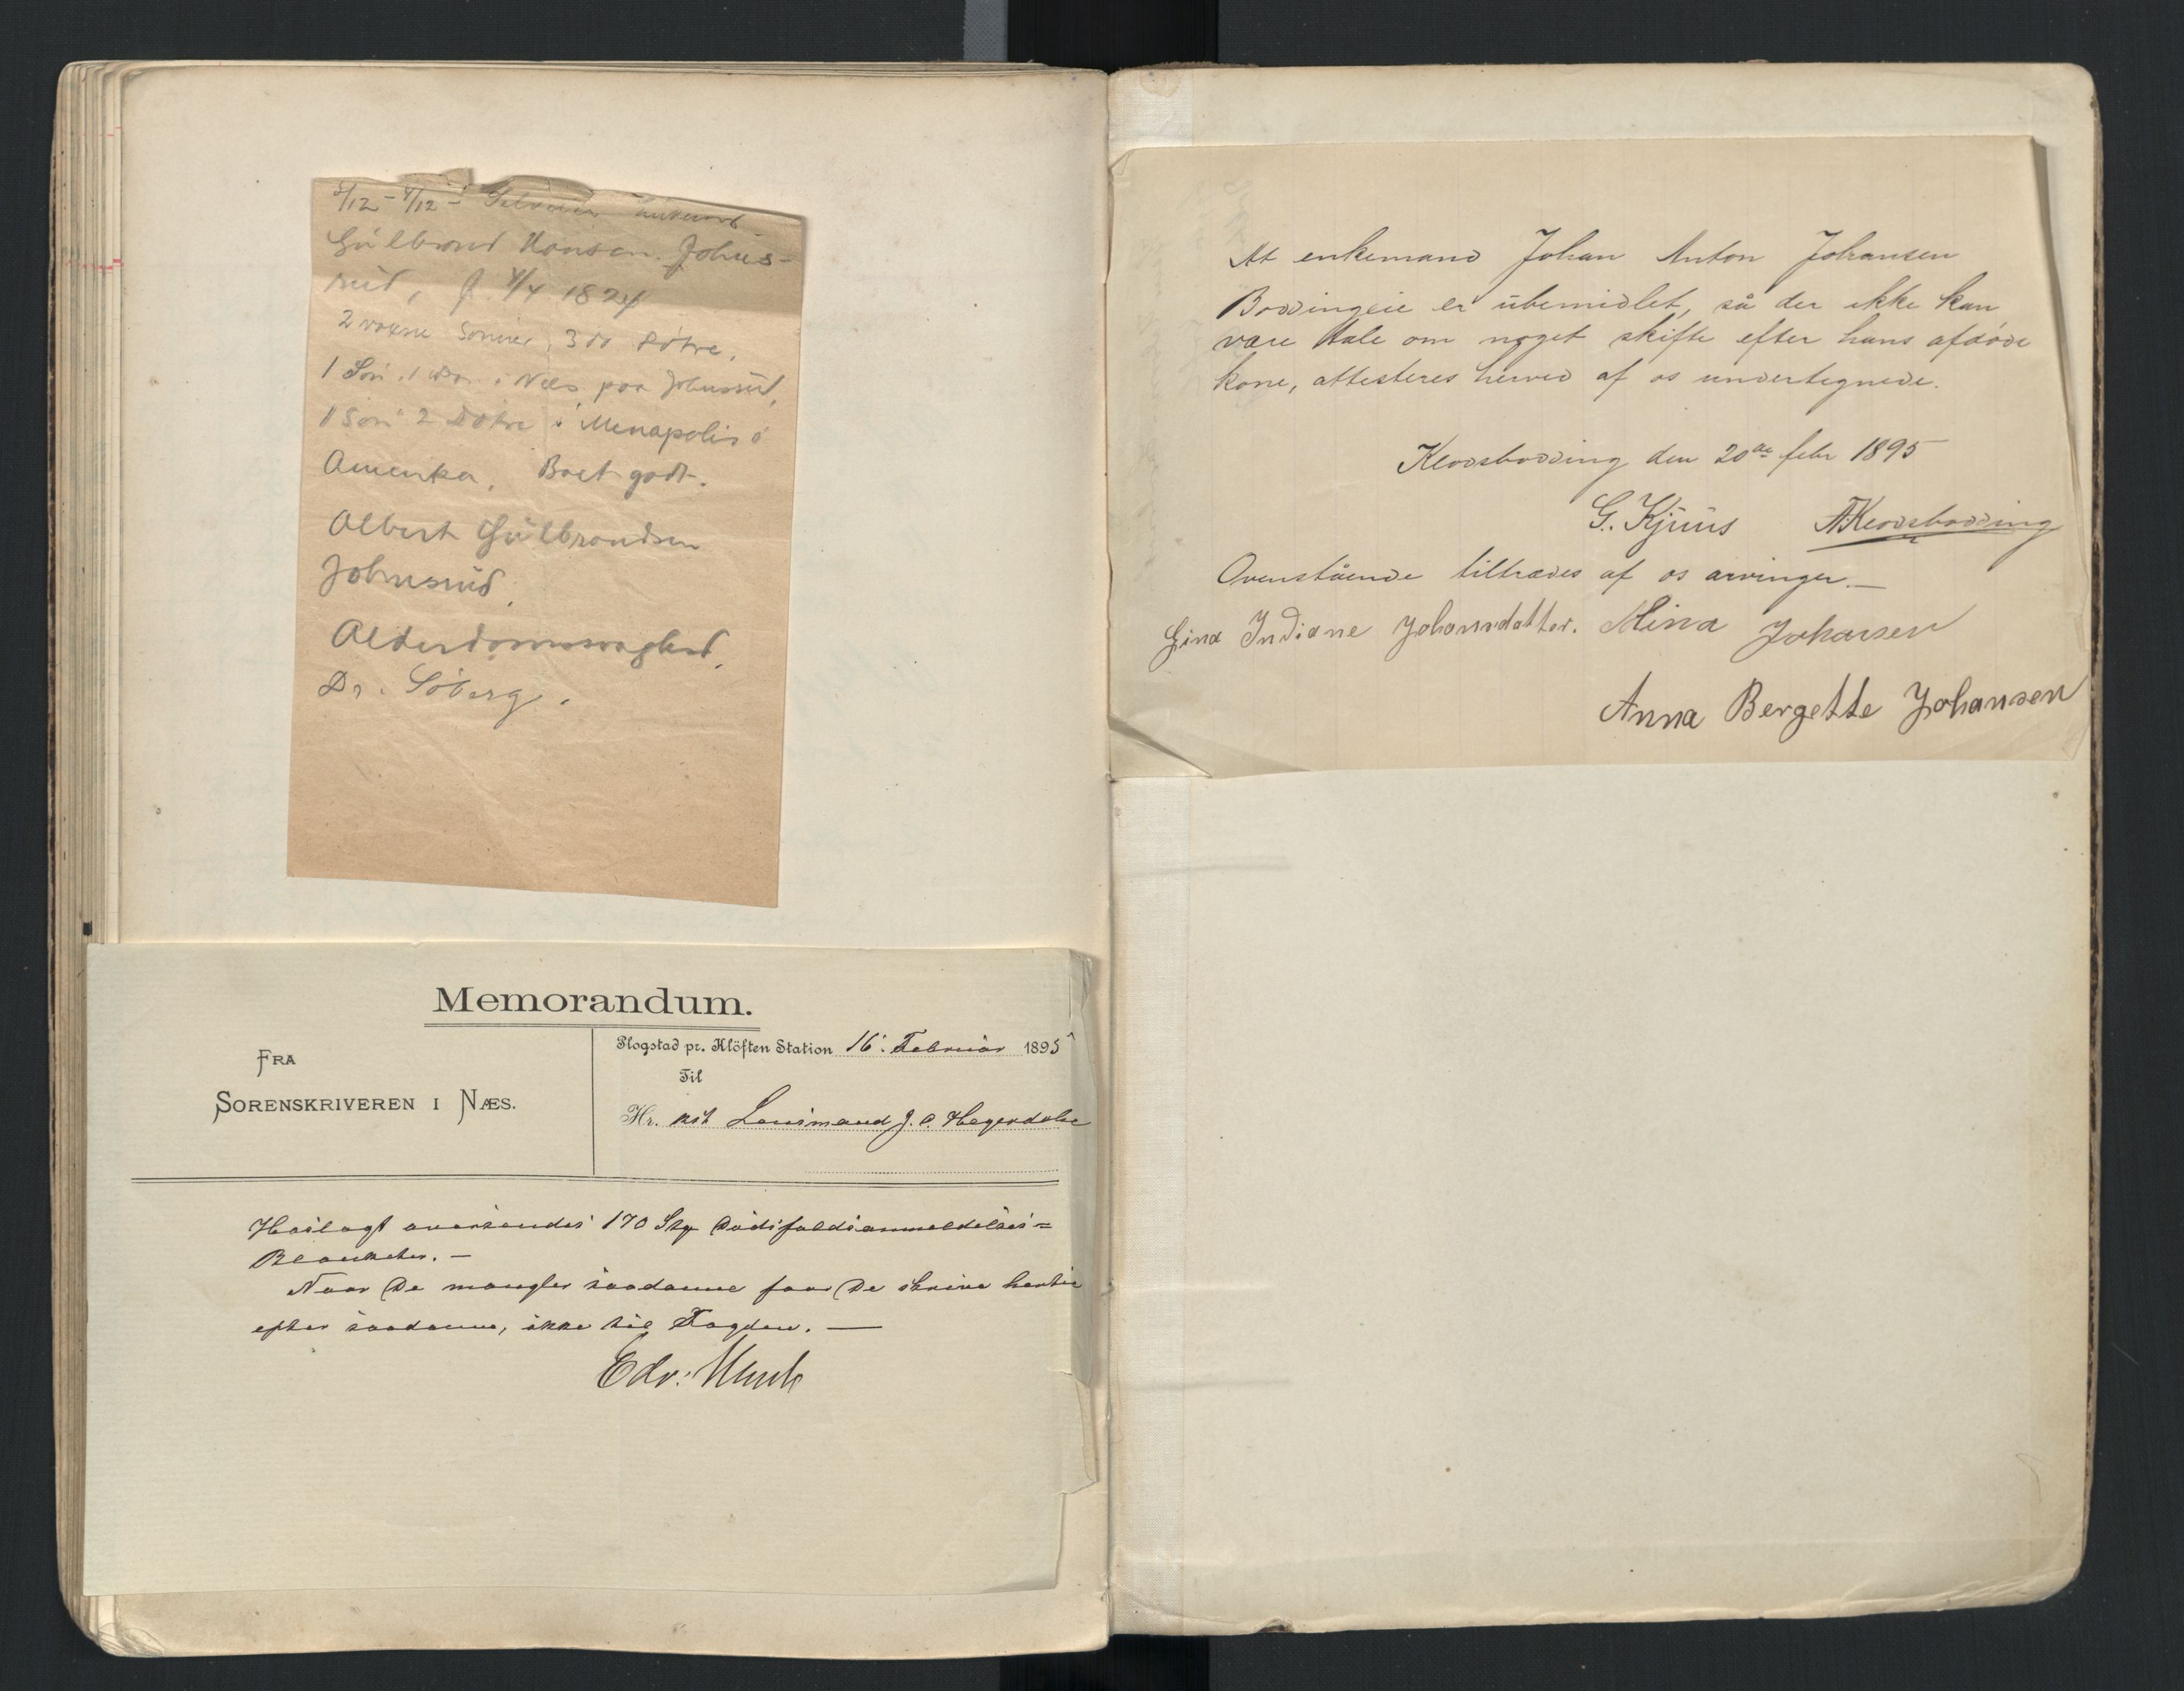 5/12 - 9/12
Gulbrand Hansen Johns-
rud, f. 4/4 1824
2 voxne Sønner, 3 do Døtre,
1 Søn, 1 i Næs paa Johnsrud,
1 Søn 2 Døtre i Menapolis i
Amerika. Boet godt.
Albert Gulbrandsen
Johnsrud.
Alderdomssvaghed.
Dr. Söberg.
Memorandum.
FRA
SORENSKRIVEREN I NÆS.
Plogstad pr. Klöften Station 16. Februar 1895
Til
Hr. kst Lensmand J. O.
Hoslagt oversendes 170 Stk Dødsfaldsanmeldelses=
Blanketter. —
Naar De mangler saadanne faar De skrive hertil
efter saadanne, ikke til Fogden. —
Edv: Munch
At enkemand Johan Anton Johansen
Boddingeie er ubemidlet, så der ikke kan
være tale om noget skifte efter hans afdøde
kone, attesteres herved af os undertegnede.
Klodsbodding den 20de febr 1895
G. Kjuus A Klodsbodding
Ovenstående tiltrædes af os arvinger. —
Gina Indiane Johansdatter. Mina Johansen
Anna Bergette Johansen